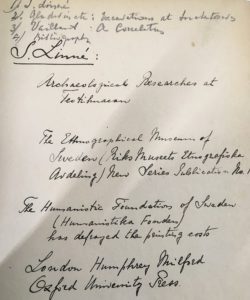 1/ S. Linné
2/ Gladwin: Excavations at Snaketown
3/ Vaillant: A Correlation
4/ Bibliography
S. Linné:
Archaeological Researches at
Teotihuacan
The Ethnographical Museum of
Sweden (Riks Museets Etnografiska
Avdeling) New Series Publication No. 1
The Humanistic Foundation of Sweden
(Humanistika Fonden)
has defrayed the printing costs
London Humphrey Milford
Oxford University Press